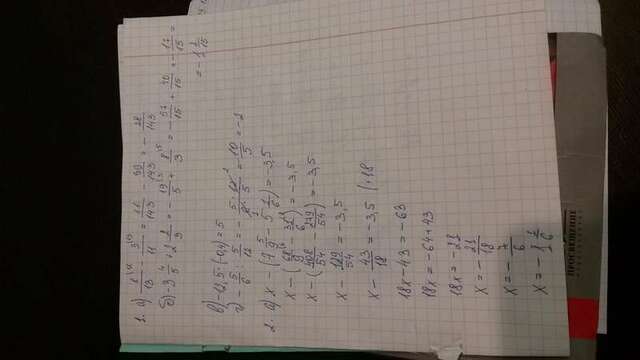 1. а) 1/13 - 3/11 = 11/143 - 39/143 = - 28/143
б) -3 4/5 + 2 2/3 = - 19/5 + 8/3 = - 57/15 + 40/15 = - 17/15 =
= -1 2/15
в) -12,5 · (-0,4) = 5
г) - 5/6 : 5/12 = - 5·12/6·5 = 10/5 = -2
2. а) x - (7 5/9 - 5 1/6) = -3,5
x - (68/9 - 31/6) = -3,5
x - (408/54 - 279/54) = -3,5
x - 129/54 = -3,5
x - 43/18 = -3,5 | · 18
18x - 43 = -63
18x = -64 + 43
18x = -21
x = - 21/18
x = - 7/6
x = -1 1/6
ПРОСВЕЩЕНИЕ